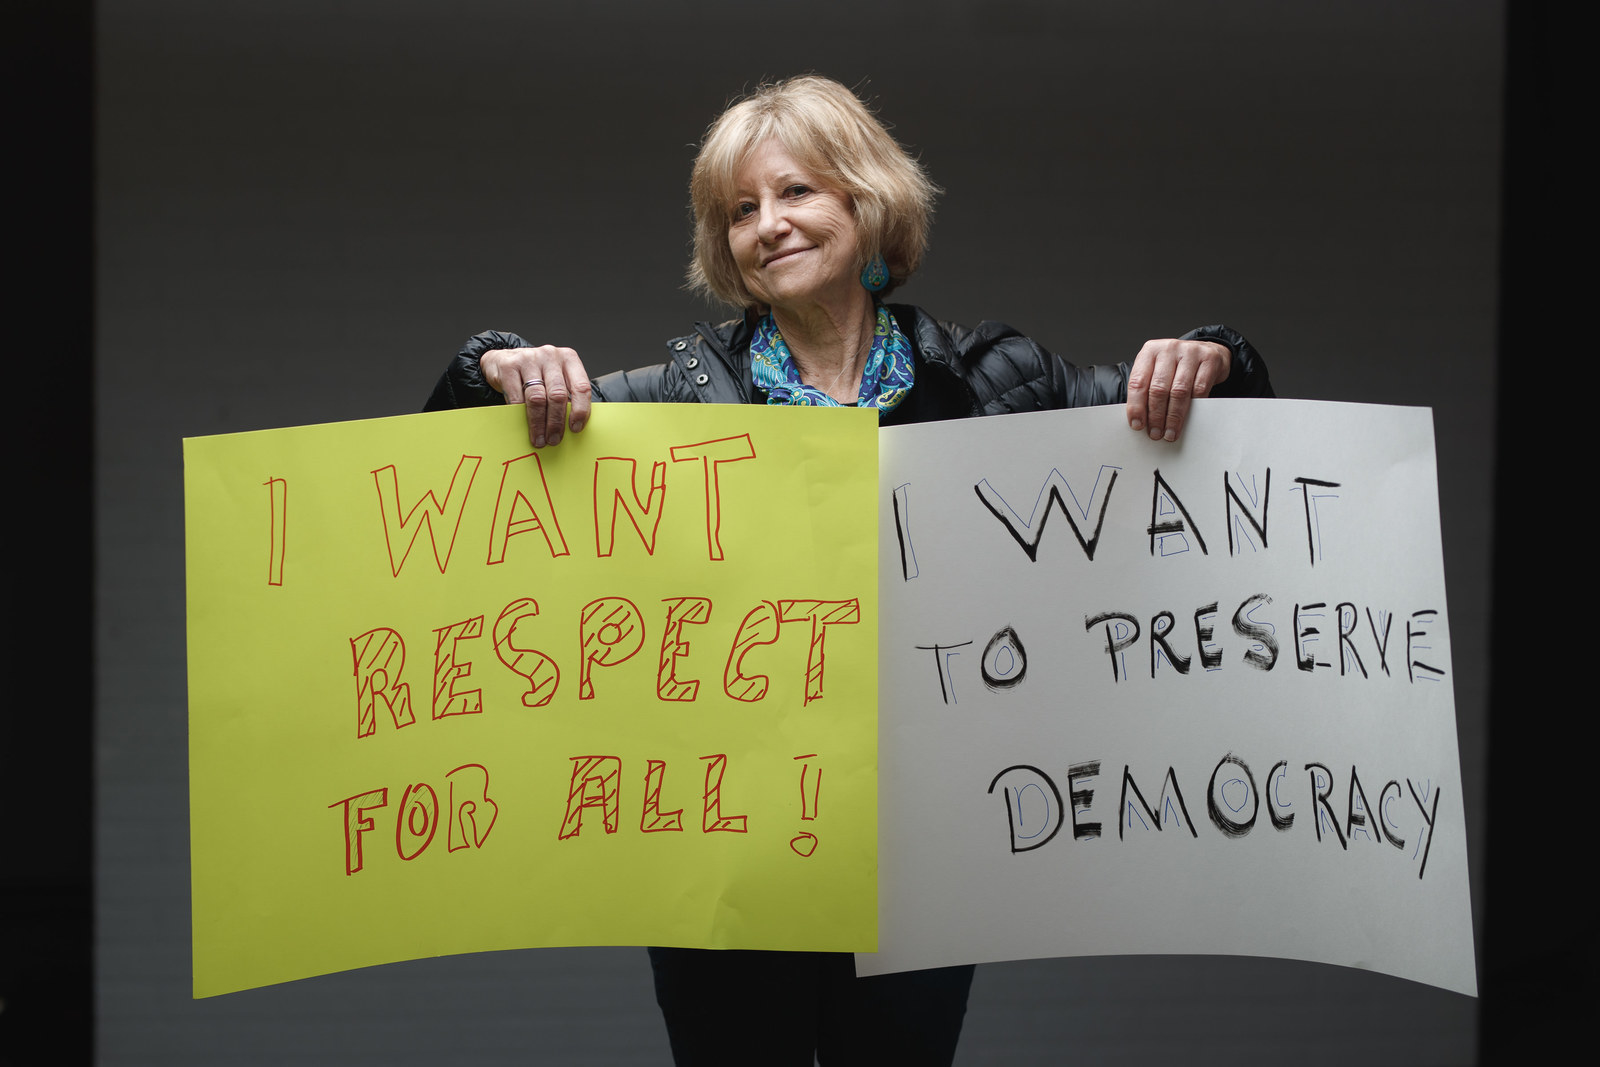 I WANT
RESPECT
FOR ALL!
I WANT
TO PRESERVE
DEMOCRACY